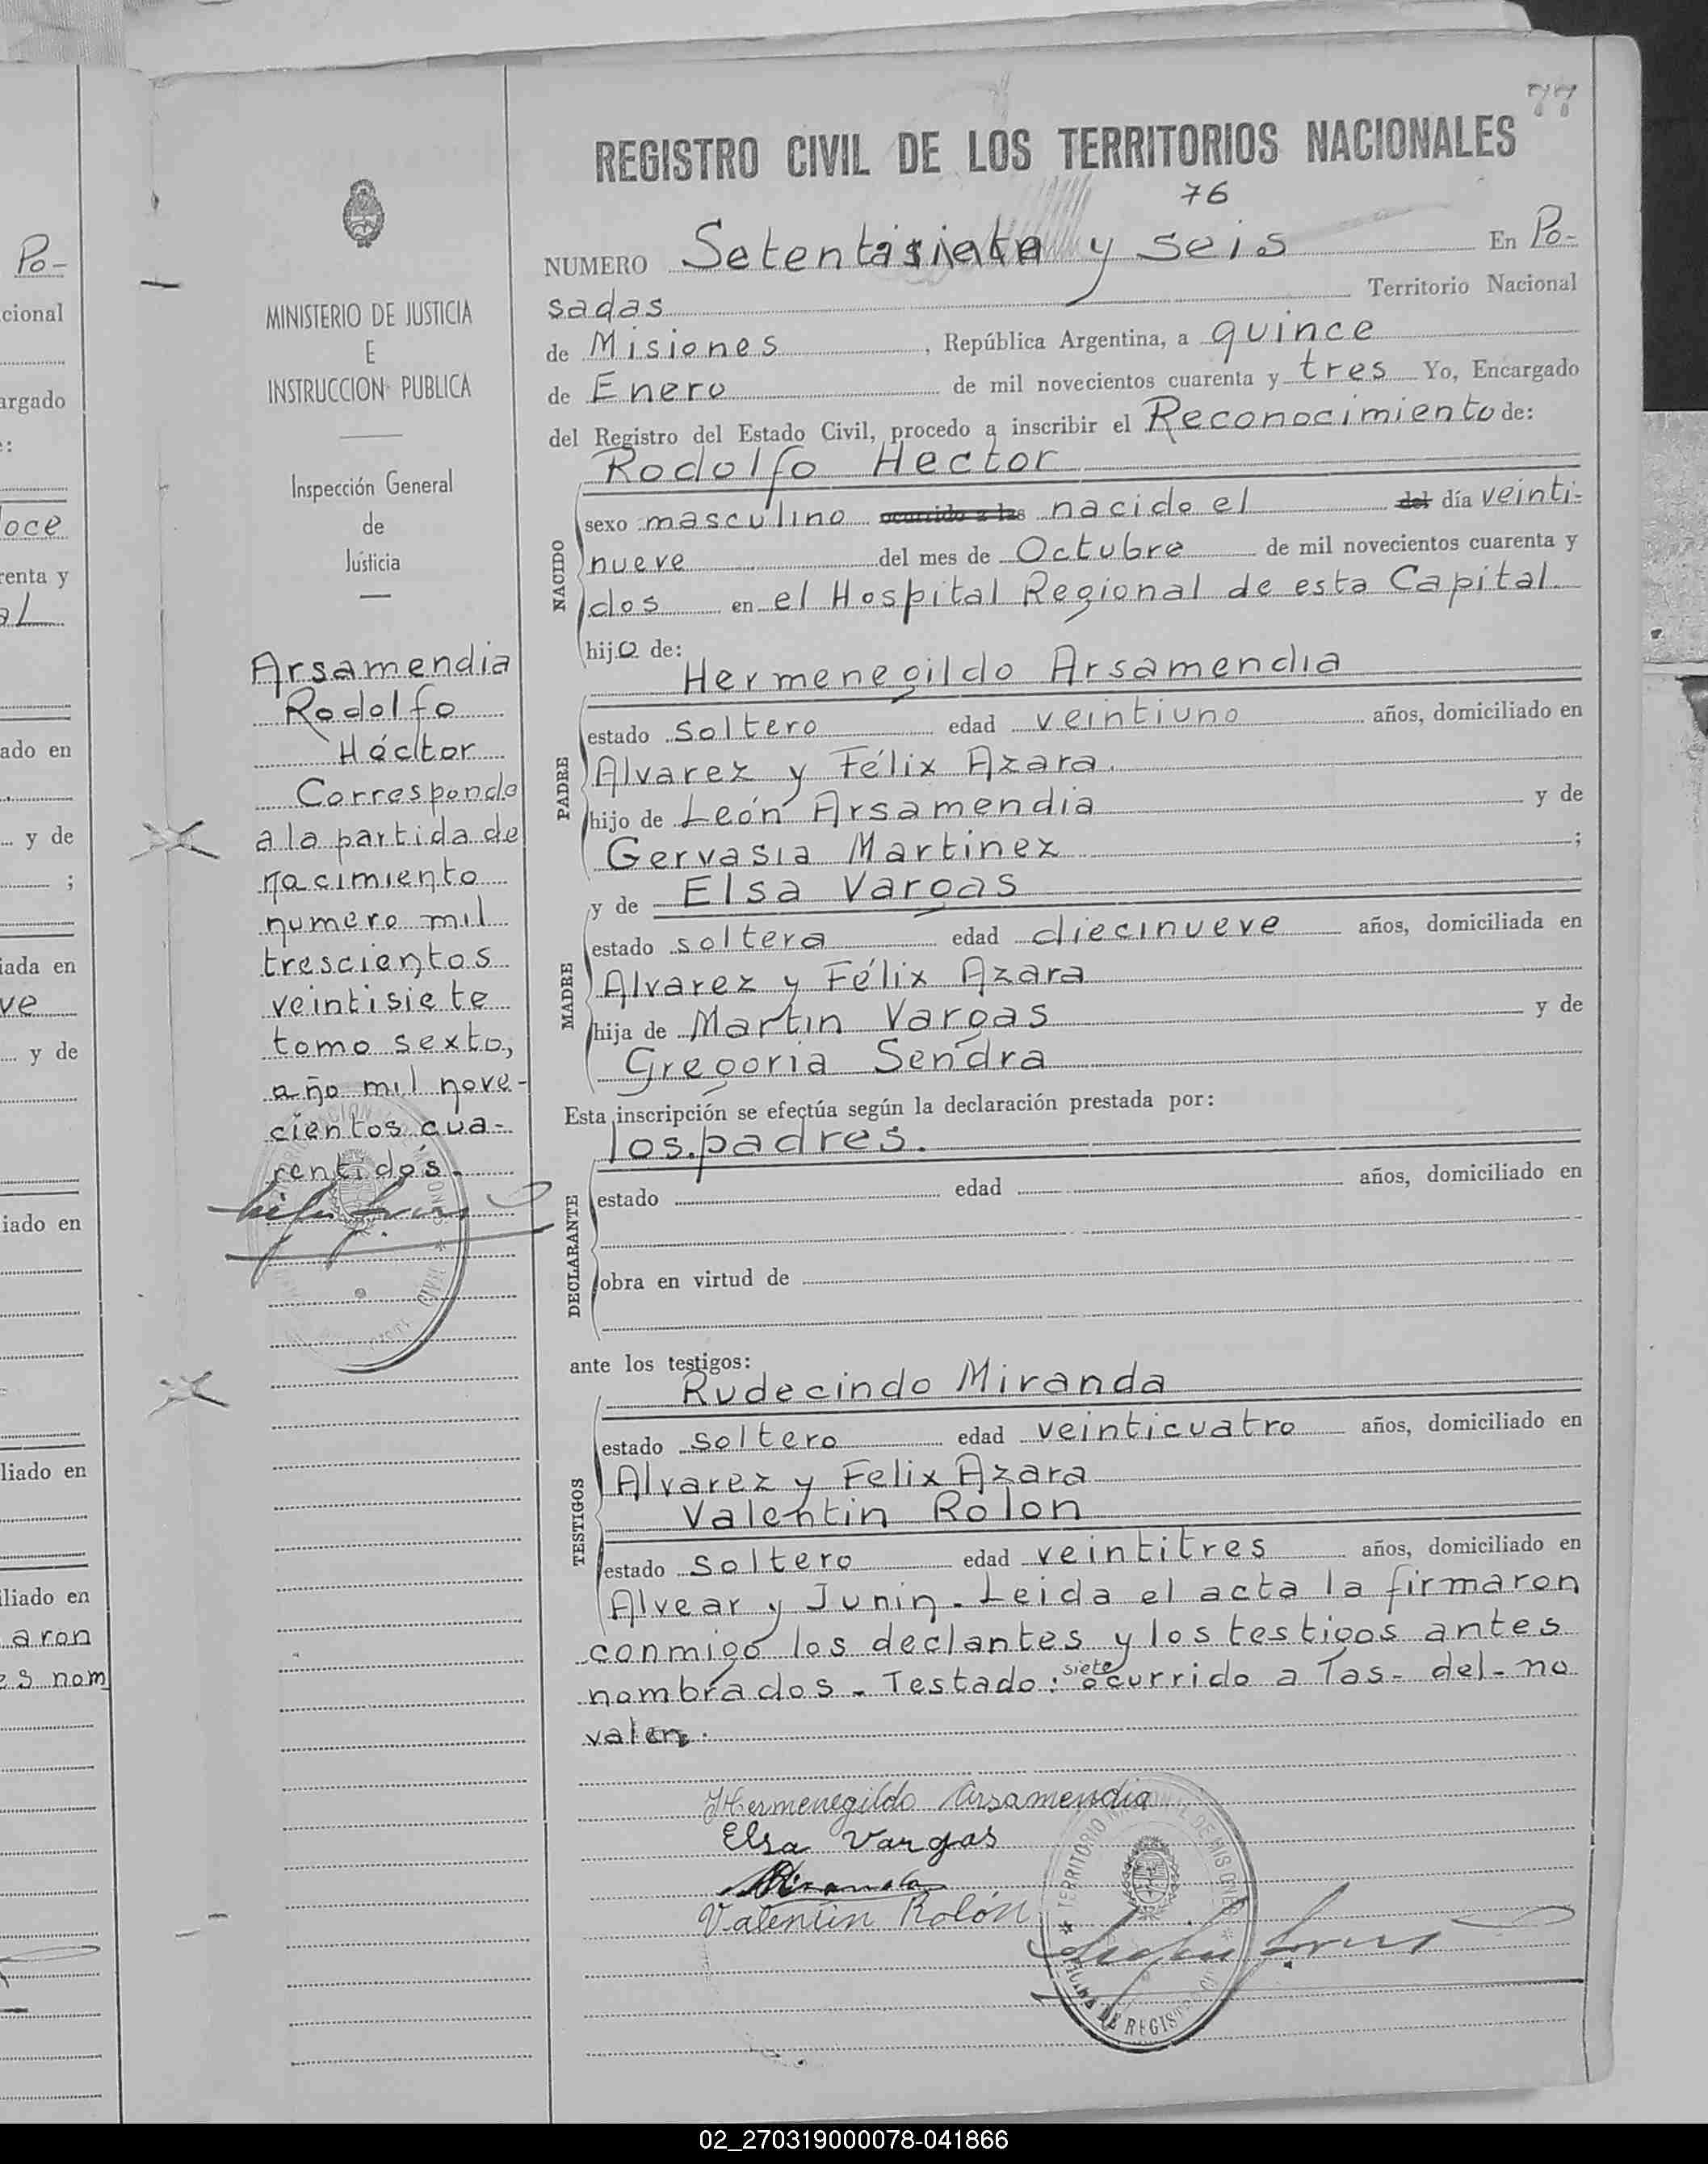 77
REGISTRO CIVIL DE LOS TERRITORIOS NACIONALES
76
NUMERO Setentisiete y seis En Po-
sadas Territorio Nacional
de Misiones, República Argentina, a quince
de Enero de mil novecientos cuarenta y tres Yo, Encargado
del Registro del Estado Civil, procedo a inscribir el Reconocimiento de:
Rodolfo Hector
NACIDO
sexo masculino ocurrido a las nacido el del día veinti-
nueve del mes de Octubre de mil novecientos cuarenta y
dos en el Hospital Regional de esta Capital
hijo de:
Hermenegildo Arsamendia
PADRE
estado soltero edad veintiuno años, domiciliado en
Alvarez y Félix Azara.
hijo de León Arsamendia y de
Gervasia Martinez ;
y de Elsa Vargas
MADRE
estado soltera edad diecinueve años, domiciliada en
Alvarez y Félix Azara
hija de Martin Vargas y de
Gregoria Sendra
Esta inscripción se efectúa según la declaración prestada por:
los padres.
DECLARANTE
estado edad años, domiciliado en
obra en virtud de
ante los testigos:
Rudecindo Miranda
TESTIGOS
estado soltero edad veinticuatro años, domiciliado en
Alvarez y Felix Azara
Valentin Rolon
estado soltero edad veintitres años, domiciliado en
Alvear y Junin. Leida el acta la firmaron
conmigo los declantes y los testigos antes
nombrados - Testado: siete ocurrido a las - del - no
valen.
Hermenegildo Arsamendia
Elsa Vargas
Miranda
Valentin Rolón
TERRITORIO NACIONAL DE MISIONES
OFICINA DE REGISTRO CIVIL
MINISTERIO DE JUSTICIA
E
INSTRUCCION PUBLICA
Inspección General
de
Justicia
Arsamendia
Rodolfo
Héctor
Corresponde
a la partida de
nacimiento
numero mil
trescientos
veintisiete
tomo sexto,
año mil nove-
cientos cua-
renti dós.
Po-
cional
argado
e:
doce
renta y
al
ado en
y de
;
iada en
ve
y de
iado en
liado en
iliado en
aron
es nom
02_270319000078-041866